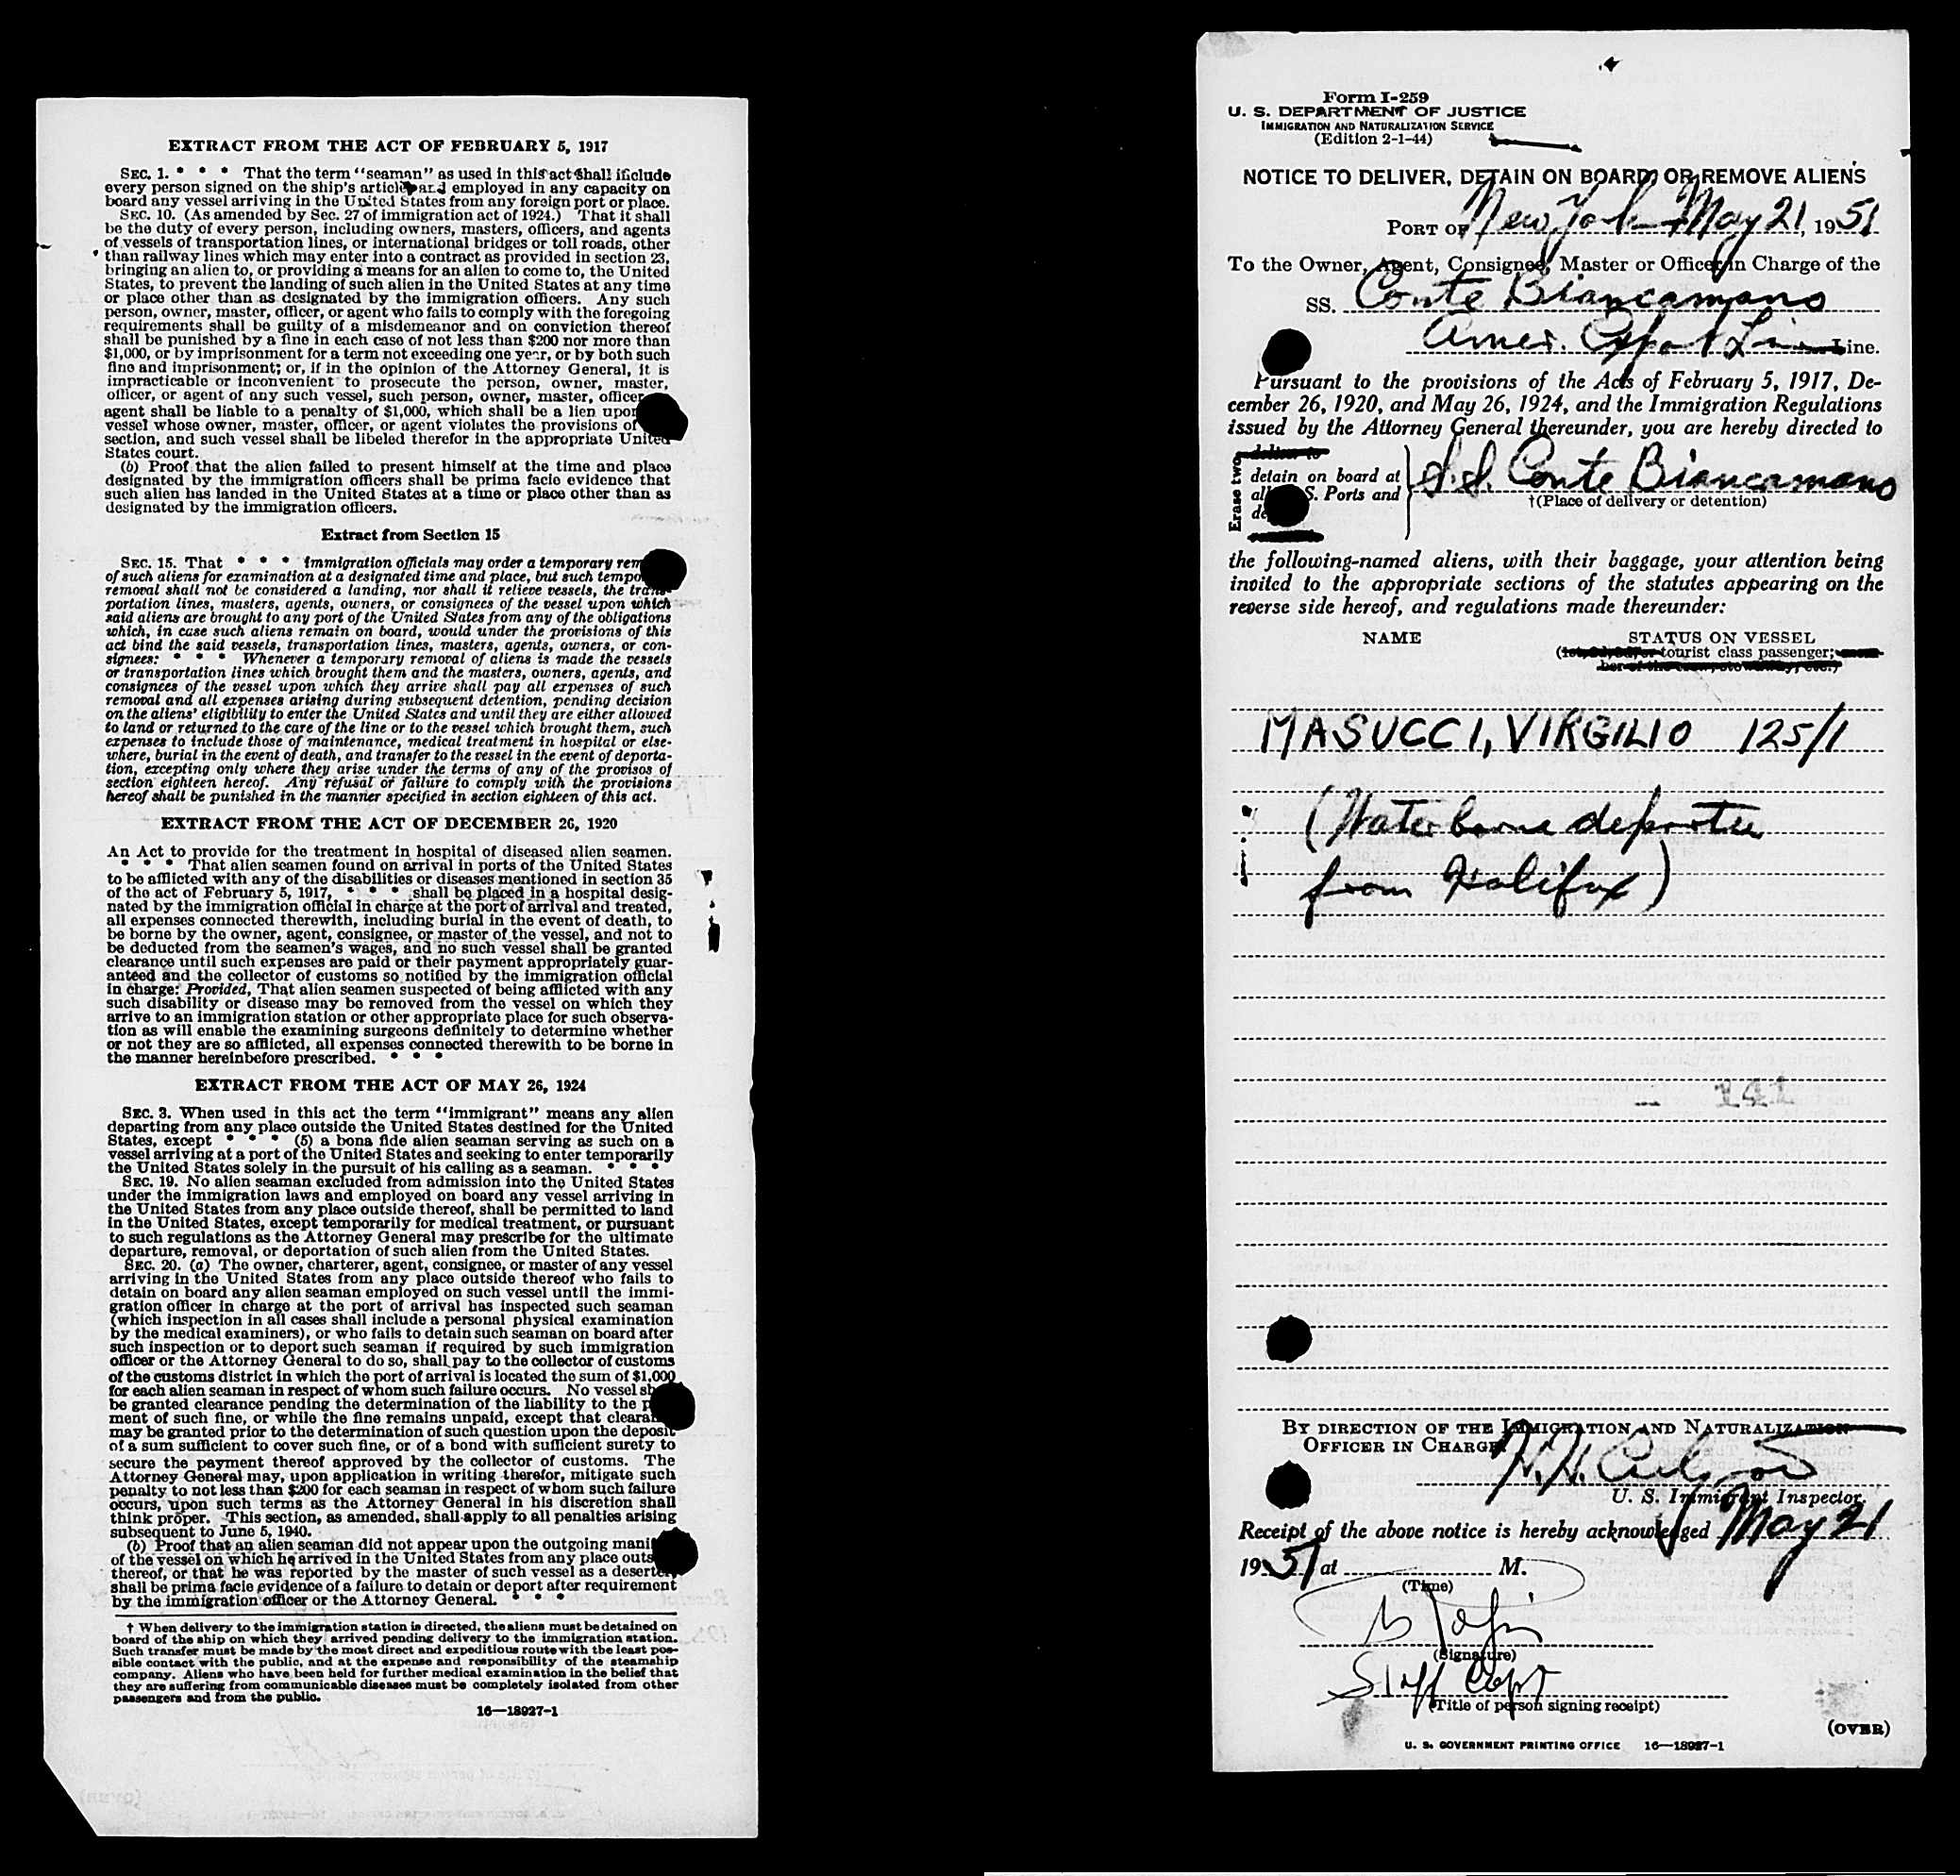 EXTRACT FROM THE ACT OF FEBRUARY 5, 1917
SEC. 1. * * * That the term "seaman" as used in this act shall include
every person signed on the ship's articles and employed in any capacity on
board any vessel arriving in the United States from any foreign port or place.
SEC. 10. (As amended by Sec. 27 of immigration act of 1924.) That it shall
be the duty of every person, including owners, masters, officers, and agents
of vessels of transportation lines, or international bridges or toll roads, other
than railway lines which may enter into a contract as provided in section 23,
bringing an alien to, or providing a means for an alien to come to, the United
States, to prevent the landing of such alien in the United States at any time
or place other than as designated by the immigration officers. Any such
person, owner, master, officer, or agent who fails to comply with the foregoing
requirements shall be guilty of a misdemeanor and on conviction thereof
shall be punished by a fine in each case of not less than $200 nor more than
$1,000, or by imprisonment for a term not exceeding one year, or by both such
fine and imprisonment; or, if in the opinion of the Attorney General, it is
impracticable or inconvenient to prosecute the person, owner, master,
officer, or agent of any such vessel, such person, owner, master, officer
agent shall be liable to a penalty of $1,000, which shall be a lien upon
vessel whose owner, master, officer, or agent violates the provisions of
section, and such vessel shall be libeled therefor in the appropriate United
States court.
(b) Proof that the alien failed to present himself at the time and place
designated by the immigration officers shall be prima facie evidence that
such alien has landed in the United States at a time or place other than as
designated by the immigration officers.
Extract from Section 15
SEC. 15. That * * * immigration officials may order a temporary rem
of such aliens for examination at a designated time and place, but such tempo
removal shall not be considered a landing, nor shall it relieve vessels, the trans-
portation lines, masters, agents, owners, or consignees of the vessel upon which
said aliens are brought to any port of the United States from any of the obligations
which, in case such aliens remain on board, would under the provisions of this
act bind the said vessels, transportation lines, masters, agents, owners, or con-
signees: * * * Whenever a temporary removal of aliens is made the vessels
or transportation lines which brought them and the masters, owners, agents, and
consignees of the vessel upon which they arrive shall pay all expenses of such
removal and all expenses arising during subsequent detention, pending decision
on the aliens' eligibility to enter the United States and until they are either allowed
to land or returned to the care of the line or to the vessel which brought them, such
expenses to include those of maintenance, medical treatment in hospital or else-
where, burial in the event of death, and transfer to the vessel in the event of deporta-
tion, excepting only where they arise under the terms of any of the provisos of
section eighteen hereof. Any refusal or failure to comply with the provisions
hereof shall be punished in the manner specified in section eighteen of this act.
EXTRACT FROM THE ACT OF DECEMBER 26, 1920
An Act to provide for the treatment in hospital of diseased alien seamen.
* * * That alien seamen found on arrival in ports of the United States
to be afflicted with any of the disabilities or diseases mentioned in section 35
of the act of February 5, 1917, * * * shall be placed in a hospital desig-
nated by the immigration official in charge at the port of arrival and treated,
all expenses connected therewith, including burial in the event of death, to
be borne by the owner, agent, consignee, or master of the vessel, and not to
be deducted from the seamen's wages, and no such vessel shall be granted
clearance until such expenses are paid or their payment appropriately guar-
anteed and the collector of customs so notified by the immigration official
in charge: Provided, That alien seamen suspected of being afflicted with any
such disability or disease may be removed from the vessel on which they
arrive to an immigration station or other appropriate place for such observa-
tion as will enable the examining surgeons definitely to determine whether
or not they are so afflicted, all expenses connected therewith to be borne in
the manner hereinbefore prescribed. * * *
EXTRACT FROM THE ACT OF MAY 26, 1924
SEC. 3. When used in this act the term "immigrant" means any alien
departing from any place outside the United States destined for the United
States, except * * * (5) a bona fide alien seaman serving as such on a
vessel arriving at a port of the United States and seeking to enter temporarily
the United States solely in the pursuit of his calling as a seaman. * * *
SEC. 19. No alien seaman excluded from admission into the United States
under the immigration laws and employed on board any vessel arriving in
the United States from any place outside thereof, shall be permitted to land
in the United States, except temporarily for medical treatment, or pursuant
to such regulations as the Attorney General may prescribe for the ultimate
departure, removal, or deportation of such alien from the United States.
SEC. 20. (a) The owner, charterer, agent, consignee, or master of any vessel
arriving in the United States from any place outside thereof who fails to
detain on board any alien seaman employed on such vessel until the immi-
gration officer in charge at the port of arrival has inspected such seaman
(which inspection in all cases shall include a personal physical examination
by the medical examiners), or who fails to detain such seaman on board after
such inspection or to deport such seaman if required by such immigration
officer or the Attorney General to do so, shall pay to the collector of customs
of the customs district in which the port of arrival is located the sum of $1,000
for each alien seaman in respect of whom such failure occurs. No vessel sh
be granted clearance pending the determination of the liability to the p
ment of such fine, or while the fine remains unpaid, except that cleara
may be granted prior to the determination of such question upon the deposit
of a sum sufficient to cover such fine, or of a bond with sufficient surety to
secure the payment thereof approved by the collector of customs. The
Attorney General may, upon application in writing therefor, mitigate such
penalty to not less than $200 for each seaman in respect of whom such failure
occurs, upon such terms as the Attorney General in his discretion shall
think proper. This section, as amended, shall apply to all penalties arising
subsequent to June 5, 1940.
(b) Proof that an alien seaman did not appear upon the outgoing mani
of the vessel on which he arrived in the United States from any place outs
thereof, or that he was reported by the master of such vessel as a deserter,
shall be prima facie evidence of a failure to detain or deport after requirement
by the immigration officer or the Attorney General. * * *
† When delivery to the immigration station is directed, the aliens must be detained on
board of the ship on which they arrived pending delivery to the immigration station.
Such transfer must be made by the most direct and expeditious route with the least pos-
sible contact with the public, and at the expense and responsibility of the steamship
company. Aliens who have been held for further medical examination in the belief that
they are suffering from communicable diseases must be completely isolated from other
passengers and from the public.
16—18927-1
Form I-259
U. S. DEPARTMENT OF JUSTICE
IMMIGRATION AND NATURALIZATION SERVICE
(Edition 2-1-44)
NOTICE TO DELIVER, DETAIN ON BOARD, OR REMOVE ALIENS
PORT OF New York May 21, 1951
To the Owner, Agent, Consignee, Master or Officer in Charge of the
SS. Conte Biancamano
Amer. Export Line Line.
Pursuant to the provisions of the Acts of February 5, 1917, De-
cember 26, 1920, and May 26, 1924, and the Immigration Regulations
issued by the Attorney General thereunder, you are hereby directed to
Erase two
deliver to
detain on board at
all S. Ports and
de
S.S. Conte Biancamano
†(Place of delivery or detention)
the following-named aliens, with their baggage, your attention being
invited to the appropriate sections of the statutes appearing on the
reverse side hereof, and regulations made thereunder:
NAME STATUS ON VESSEL
(1st, 2d, 3d, or tourist class passenger; mem-
ber of the crew, stowaway, etc.)
MASUCCI, VIRGILIO 125/1
(Water borne deportee
from Halifax)
141
BY DIRECTION OF THE IMMIGRATION AND NATURALIZATION
OFFICER IN CHARGE
U. S. Immigrant Inspector.
Receipt of the above notice is hereby acknowledged May 21
1951 at M.
(Time)
(Signature)
Staff Capt
(Title of person signing receipt)
(OVER)
U. S. GOVERNMENT PRINTING OFFICE 16—18927-1